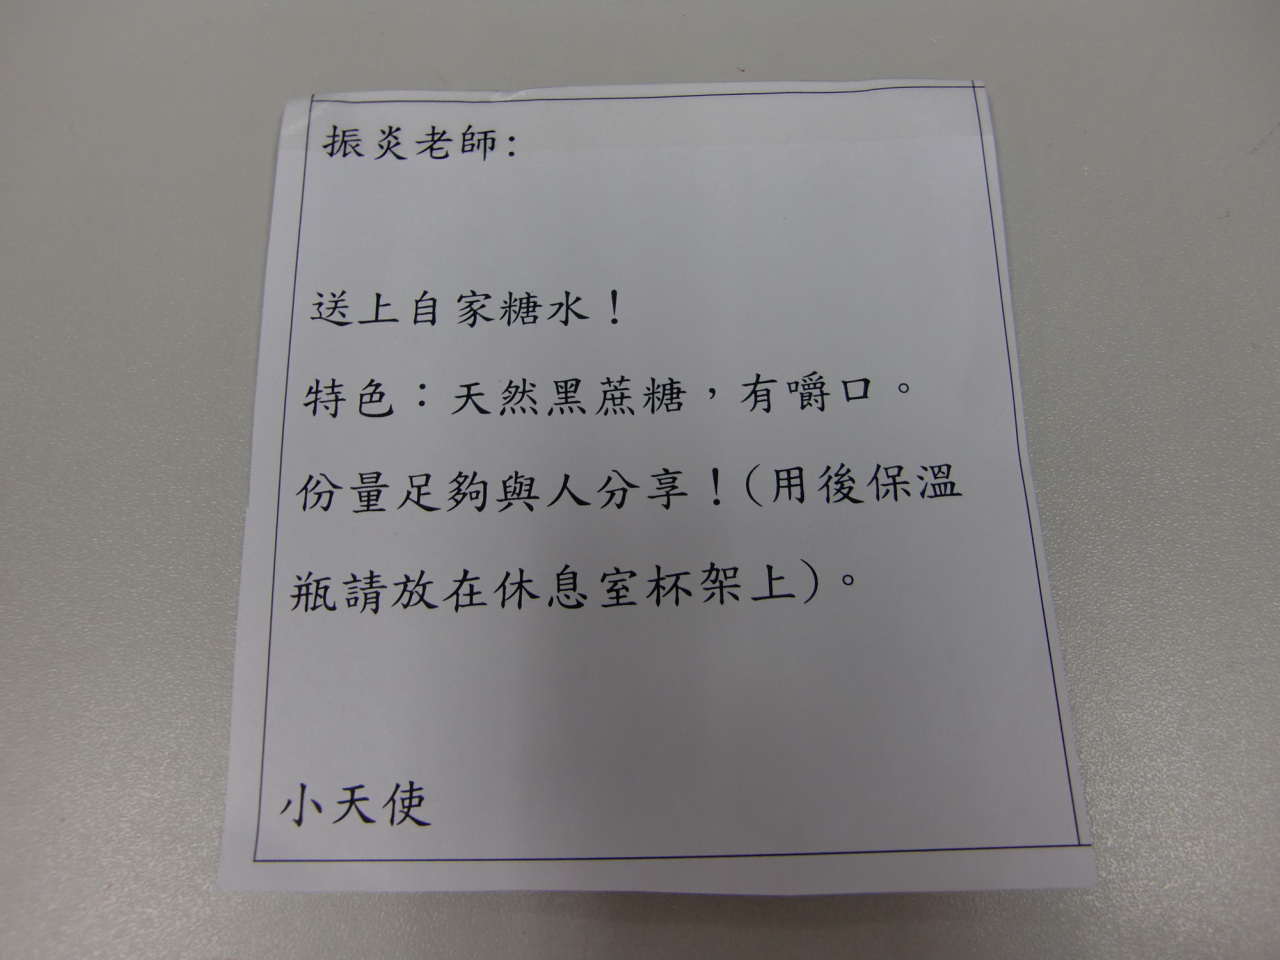 振炎老師:
送上自家糖水！
特色：天然黑蔗糖，有嚼口。
份量足夠與人分享！(用後保溫
瓶請放在休息室杯架上)。
小天使